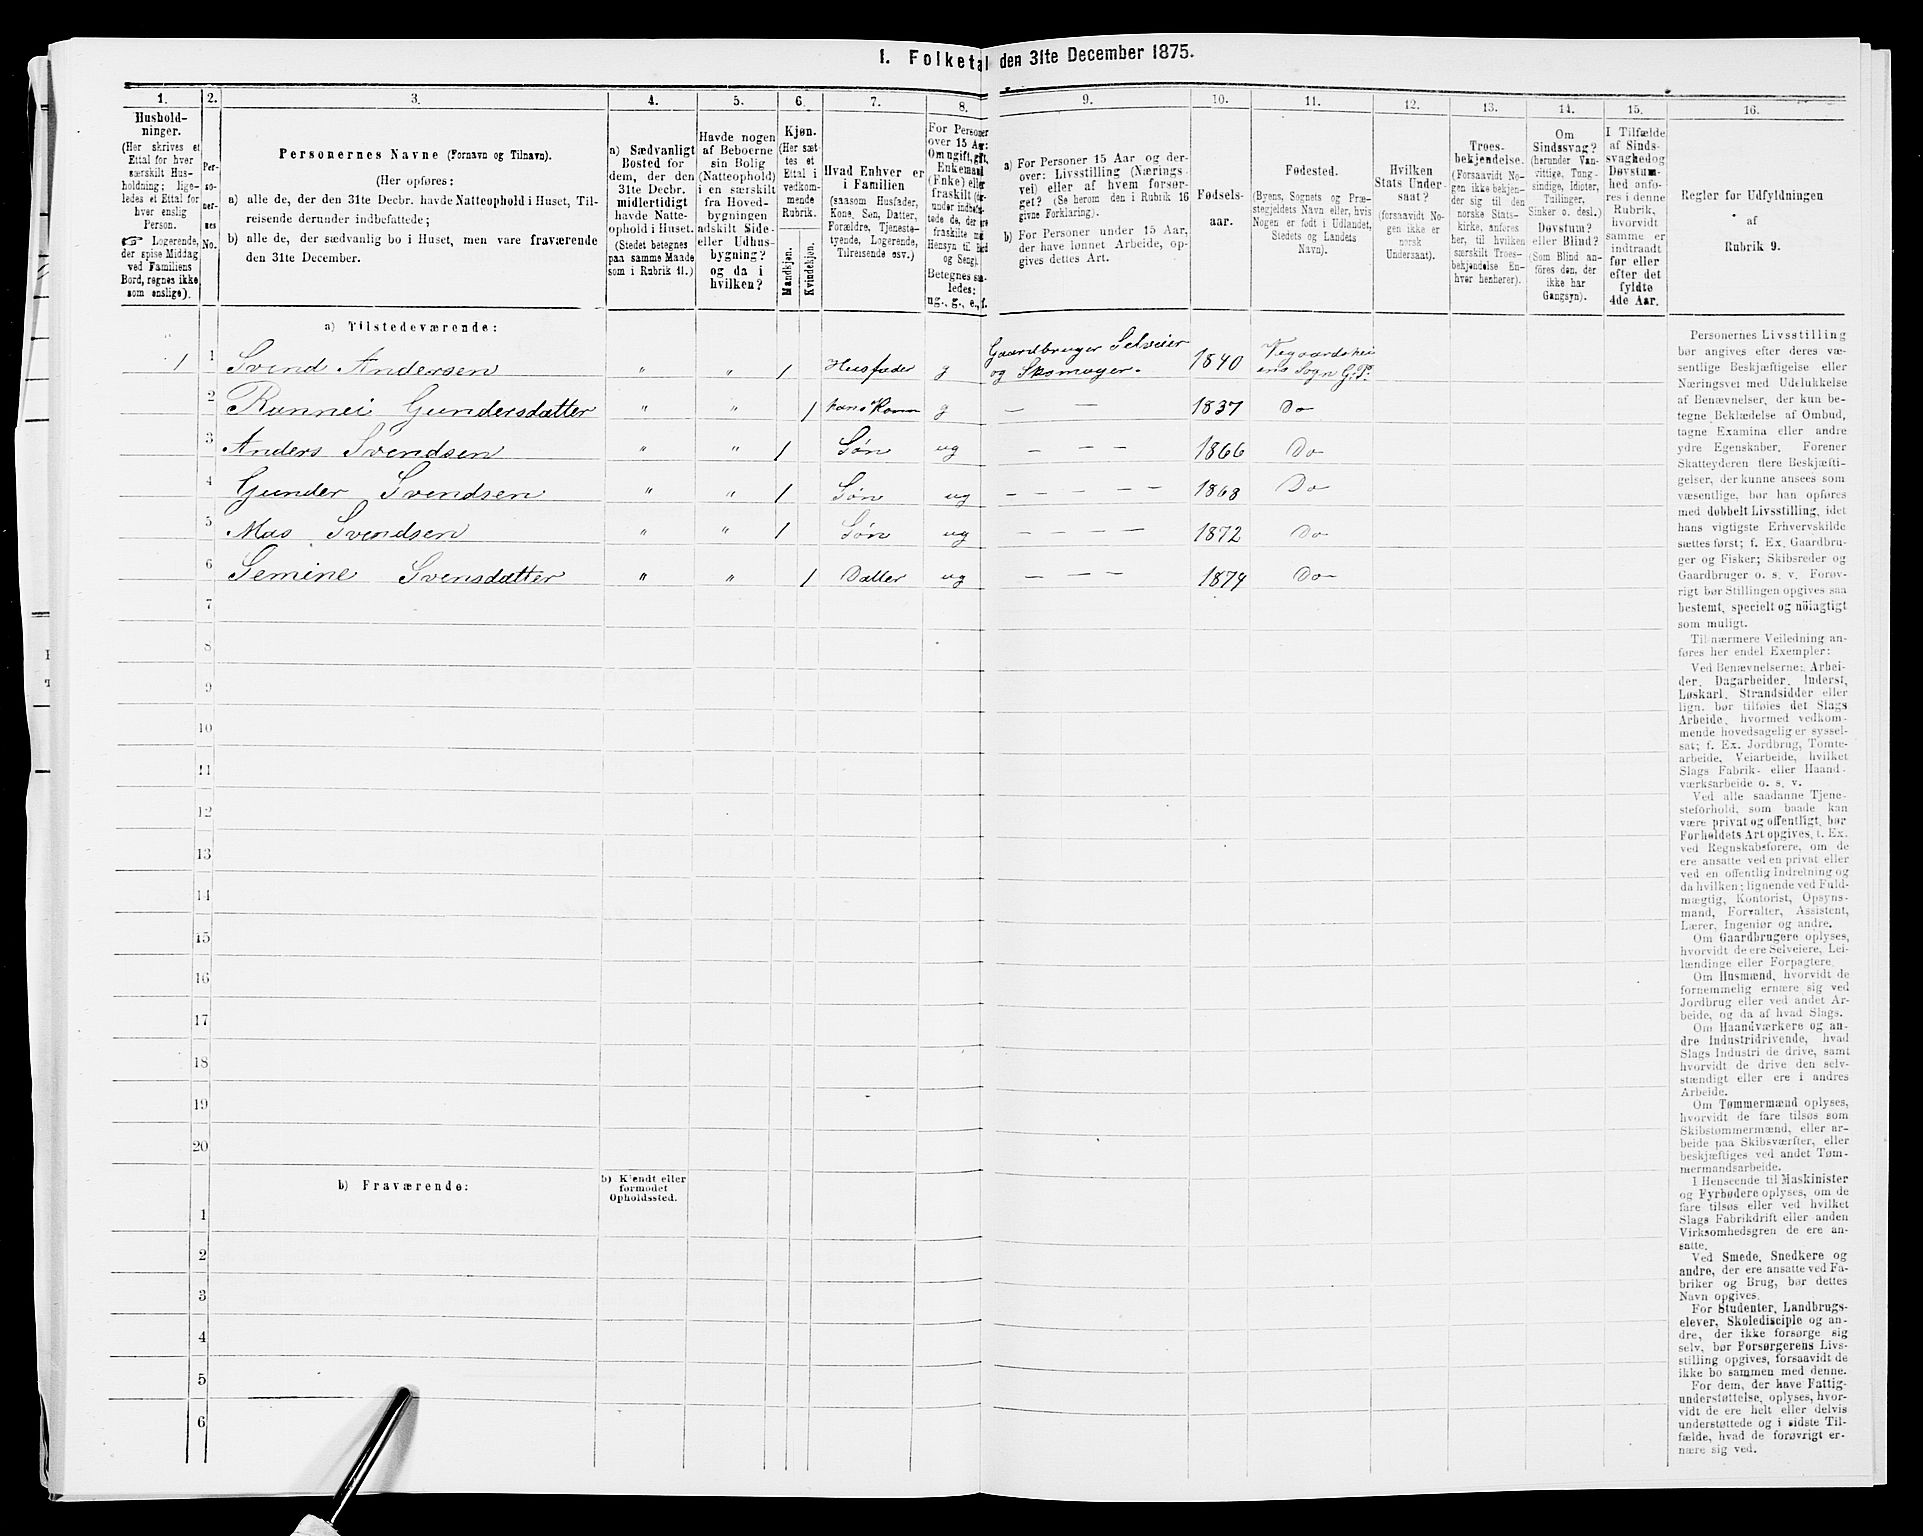 1. Folketal den 31te December 1875.
1. 2. 3. 4. 5. 6. 7. 8. 9. 10. 11. 12. 13. 14. 15. 16.
Hushold-
ninger.
(Her skrives et
Ettal for hver
særskilt Hus-
holdning; lige-
ledes et Ettal for
hver enslig
Person.
☞ Logerende,
der spise Middag
ved Familiens
Bord, regnes ikke
som enslige).
Per-
so-
ner-
nes
No.
Personernes Navne (Fornavn og Tilnavn).
(Her opføres:
a) alle de, der den 31te Decbr. havde Natteophold i Huset, Til-
reisende derunder indbefattede;
b) alle de, der sædvanlig bo i Huset, men vare fraværende
den 31te December.
a) Sædvanligt
Bosted for
dem, der den
31te Decbr.
midlertidigt
havde Natte-
ophold i Huset.
(Stedet betegnes
paa samme Maade
som i Rubrik 11.)
Havde nogen
af Beboerne
sin Bolig
(Natteophold)
i en særskilt
fra Hoved-
bygningen
adskilt Side-
eller Udhus-
bygning?
og da i
hvilken?
Kjøn.
(Her sæt-
tes et
Ettal i
vedkom-
mende
Rubrik.
Mandkjøn.
Kvindekjøn.
Hvad Enhver er
i Familien
(saasom Husfader,
Kone, Søn, Datter,
Forældre, Tjeneste-
tyende, Logerende,
Tilreisende osv.).
For Personer
over 15 Aar:
Om ugift, gift,
Enkemand
(Enke) eller
fraskilt
Betegnes saa-
ledes:
ug., g., e., f.
a) For Personer 15 Aar og der-
over: Livsstilling (Nærings-
vei) eller af hvem forsør-
get? (Se herom den i Rubrik 16
givne Forklaring).
b) For Personer under 15 Aar,
der have lønnet Arbeide, op-
gives dettes Art.
Fødsels-
aar.
Fødested.
(Byens, Sognets og Præ-
stegjeldets Navn eller, hvis
Nogen er født i Udlandet,
Stedets og Landets
Navn).
Hvilken
Stats Under-
saat?
(forsaavidt No-
gen ikke er
norsk
Undersaat).
Troes-
bekjendelse.
(Forsaavidt No-
gen ikke bekjen-
der sig til den
norske Stats-
kirke, anføres
her, til hvilken
særskilt Troes-
bekjendelse En-
hver henhører).
Om
Sindssvag?
(herunder Van-
vittige, Tung-
sindige, Idioter,
Tullinger,
Sinker o. desl.)
Døvstum?
eller Blind?
(Som Blind an-
føres den, der
ikke har
Gangsyn).
I Tilfælde
af Sinds-
svaghed og
Døvstum-
hed anfø-
res i denne
Rubrik,
hvorvidt
samme er
indtraadt
før eller
efter det
fyldte
4de Aar.
Regler for Udfyldningen
af
Rubrik 9.
a) Tilstedeværende:
1 1 Svend Andersen " " 1 Husfader g Gaardbruger Selveier
og Skomager. 1840 Vegaardshei
ens Sogn G. P.
2 Rannei Gundersdatter " " 1 hans Kone g — — 1837 Do
3 Anders Svendsen " " 1 Søn ug — — — 1866 Do
4 Gunder Svendsen " " 1 Søn ug — — — — 1868 Do
5 Mas Svendsen " " 1 Søn ug — — — 1872 Do
6 Semine Svensdatter " " 1 Datter ug — — — 1874 Do
7
8
9
10
11
12
13
14
15
16
17
18
19
20
b) Fraværende:
b) Kjendt eller
formodet
Opholdssted.
1
2
3
4
5
6
Personernes Livsstilling
bør angives efter deres væ-
sentlige Beskjæftigelse eller
Næringsvei med Udelukkelse
af Benævnelser, der kun be-
tegne Beklædelse af Ombud,
tagne Examina eller andre
ydre Egenskaber. Forener
Skatteyderen flere Beskjæfti-
gelser, der kunne ansees som
væsentlige, bør han opføres
med dobbelt Livsstilling, idet
hans vigtigste Erhvervskilde
sættes først; f. Ex. Gaardbru-
ger og Fisker; Skibsreder og
Gaardbruger o. s. v. Forøv-
rigt bør Stillingen opgives saa
bestemt, specielt og nöiagtigt
som muligt.
Til nærmere Veiledning an-
føres her endel Exempler:
Ved Benævnelserne: Arbei-
der, Dagarbeider, Inderst,
Løskarl, Strandsidder eller
lign. bør tilføies det Slags
Arbeide, hvormed vedkom-
mende hovedsagelig er syssel-
sat; f. Ex. Jordbrug, Tomte-
arbeide, Veiarbeide, hvilket
Slags Fabrik- eller Haand-
værksarbeide o. s. v.
Ved alle saadanne Tjene-
steforhold, som baade kan
være privat og offentligt, bør
Forholdets Art opgives, t. Ex.
ved Regnskabsførere, om de
ere ansatte ved en privat eller
ved en offentlig Indretning og
da hvilken; lignende ved Fuld-
mægtig, Kontorist, Opsyns-
mand, Forvalter, Assistent,
Lærer, Ingeniør og andre.
Om Gaardbrugere oplyses,
hvorvidt de ere Selveiere, Lei-
lændinge eller Forpagtere.
Om Husmænd, hvorvidt de
fornemmelig ernære sig ved
Jordbrug eller ved andet Ar-
beide, og da af hvad Slags.
Om Haandværkere og an-
dre Industridrivende, hvad
Slags Industri de drive, samt
hvorvidt de drive den selv-
stændigt eller ere i andres
Arbeide.
Om Tømmermænd oplyses,
hvorvidt de fare tilsøs som
Skibstømmermænd, eller ar-
beide paa Skibsværfter, eller
beskjæftiges ved andet Tøm-
mermandsarbeide.
I Henseende til Maskinister
og Fyrbødere oplyses, om de
fare tilsøs eller ved hvilket
Slags Fabrikdrift eller anden
Virksomhedsgren de ere an-
satte.
Ved Smede, Snedkere og
andre, der ere ansatte ved Fa-
briker og Brug, bør dettes
Navn opgives.
For Studenter, Landbrugs-
elever, Skoledisciple og an-
dre, der ikke forsørge sig
selv, bør Forsørgerens Livs-
stilling opgives, forsaavidt de
ikke bo sammen med denne.
For dem, der have Fattig-
understøttelse, oplyses, hvor-
vidt de ere helt eller delvis
understøttede og i sidste Til-
fælde, hvad de forøvrigt er-
nære sig ved.